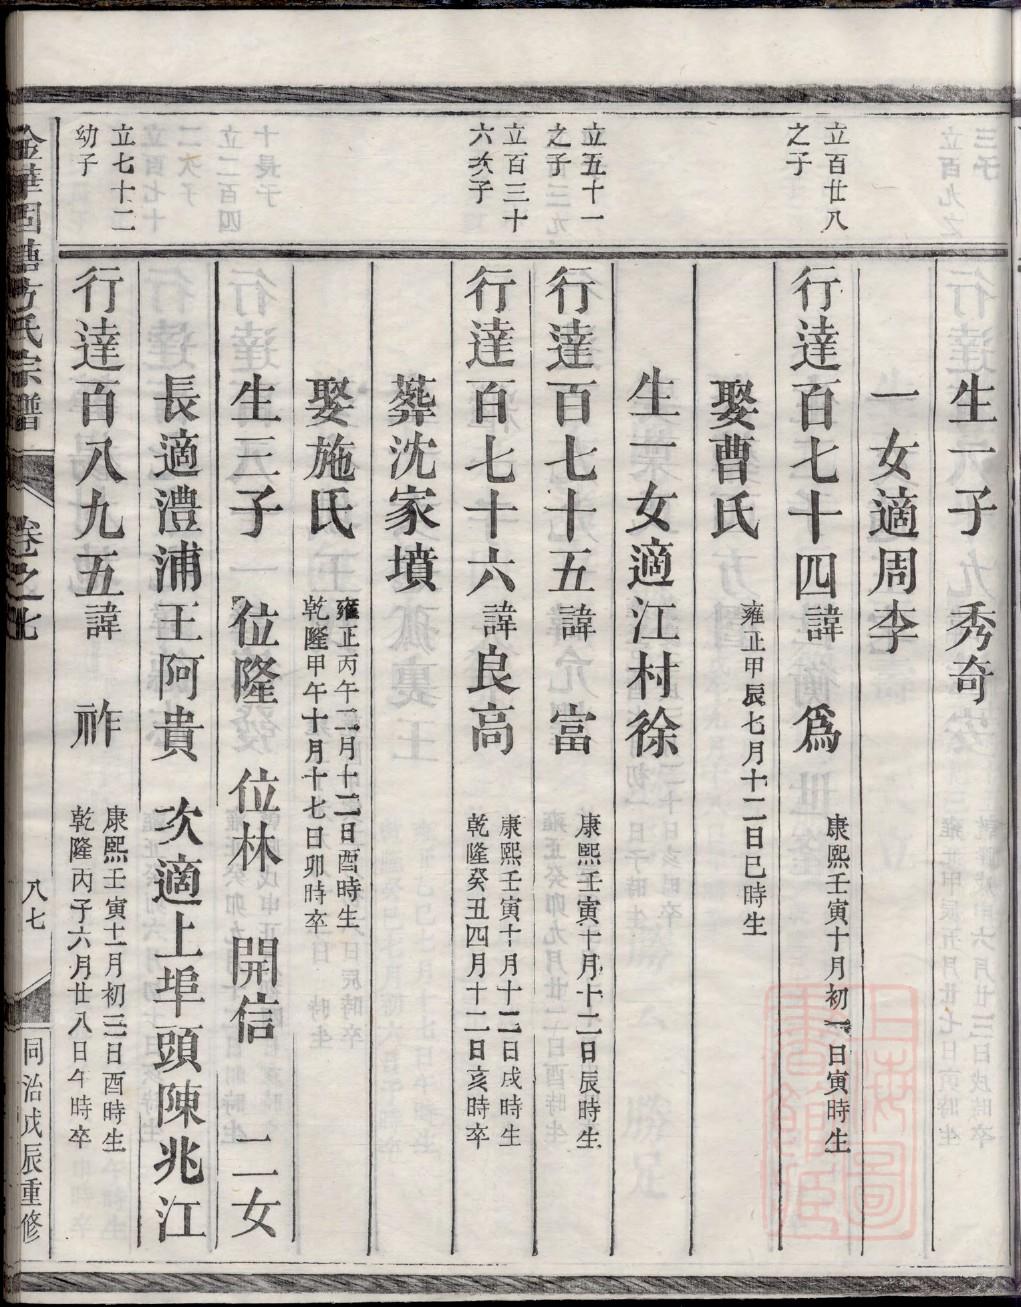 生一子 秀奇
一女適周李
立百廿八
之子
行達百七十四諱 爲
康熙壬寅十月初一日寅時生
娶曹氏
雍正甲辰七月十二日巳時生
生一女適江村徐
立五十一
之子
行達百七十五諱 富
康熙壬寅十月十二日辰時生
立百三十
六次子
行達百七十六諱良高
康熙壬寅十月十二日戌時生
乾隆癸丑四月十二日亥時卒
葬沈家墳
娶施氏
雍正丙午二月十二日酉時生
乾隆甲午十月十七日卯時卒
生三子 位隆 位林 開信 二女
長適澧浦王阿貴 次適上埠頭陳兆江
立七十二
幼子
行達百八九五諱 祚
康熙壬寅十一月初三日酉時生
乾隆丙子六月廿八日午時卒
金華固塘方氏宗譜
卷之七
八七
同治戊辰重修